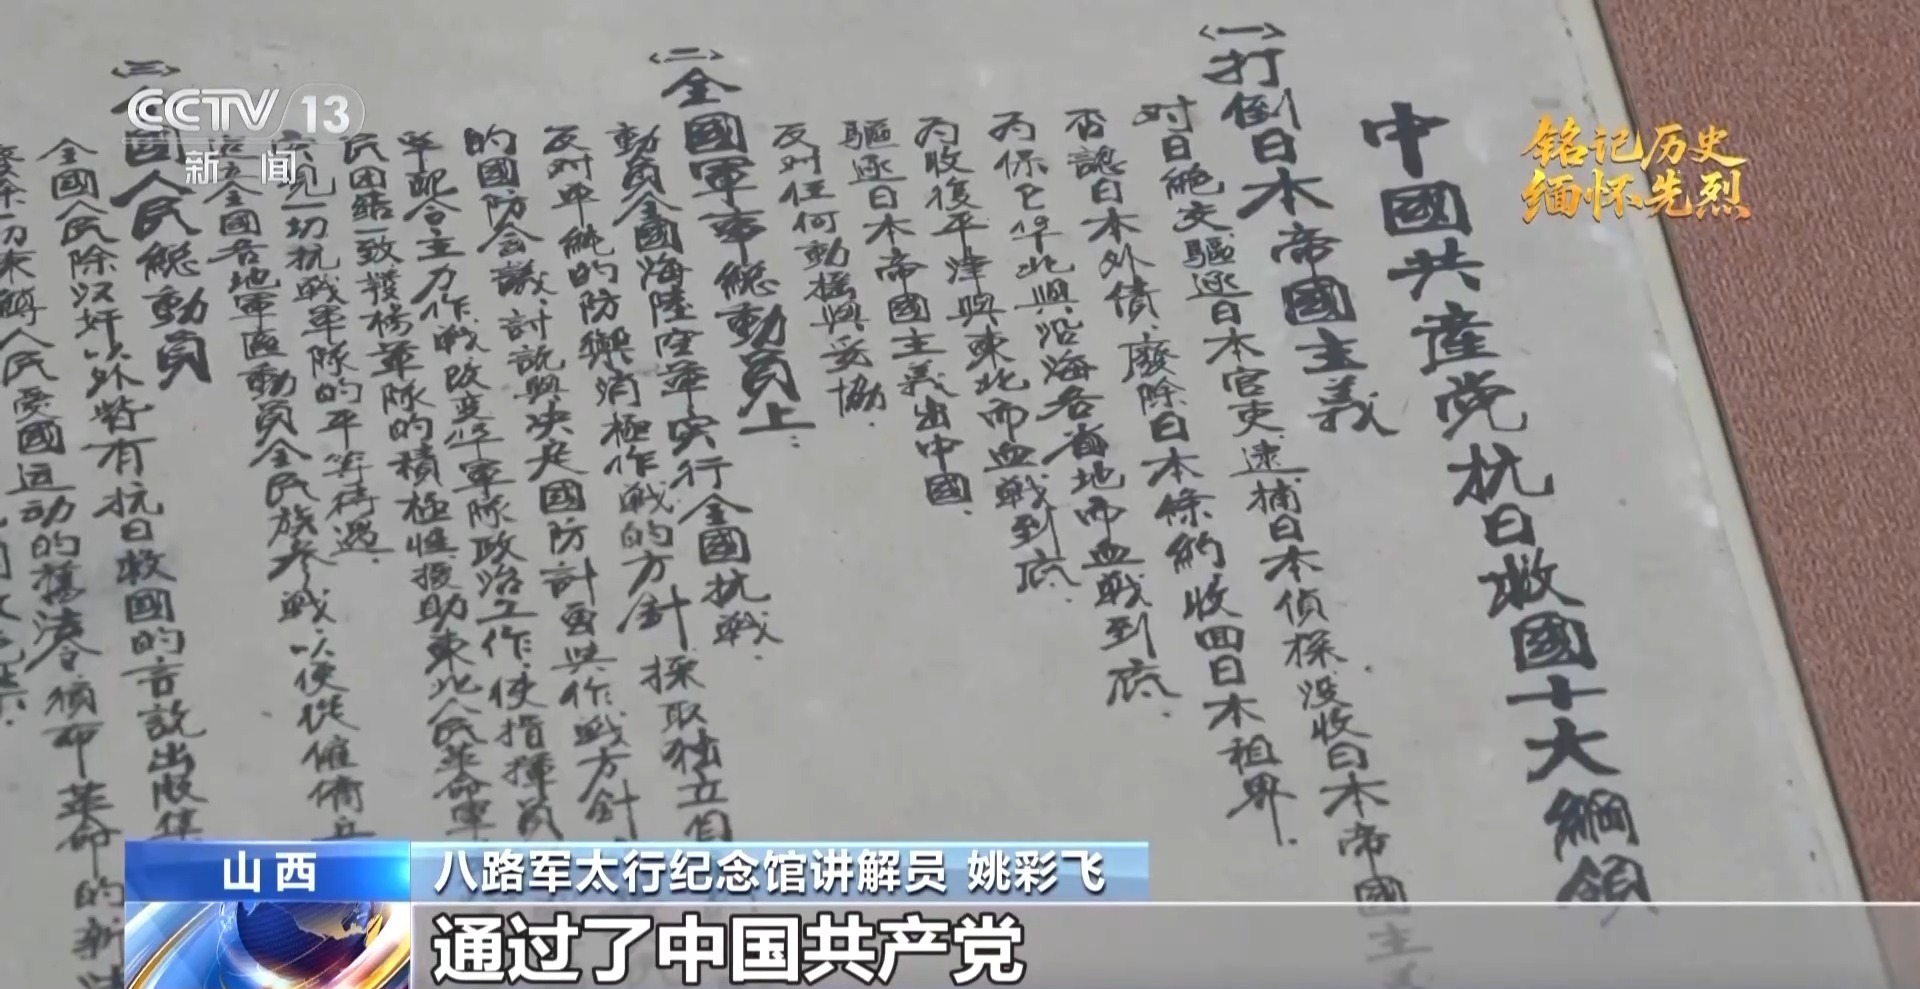 CCTV 13
新闻
铭记历史
缅怀先烈
中國共產党抗日救國十大綱領
〈一〉打倒日本帝國主義
对日絕交驅逐日本官吏逮捕日本偵探.没收日本帝國主
否認日本外債.廢除日本條約收回日本租界.
为保卫华北與沿海各省地而血戰到底.
为收復平津與東北而血戰到底.
驅逐日本帝國主義出中國.
反对任何動搖與妥協.
〈二〉全國軍事總動員上:
動員全國海陸空軍实行全國抗戰.
反对单純的防禦消極作戰的方針.採取独立自
的國防会議.討説與决定國防計画與作戰方針
配合主力作戰改变軍隊政治工作.使指揮員
民团結一致發揚軍隊的積極性援助東北人民革命軍
实現一切抗戰軍隊的平等待遇.
建立全國各地軍區動員全民族参戰.以便從僱傭兵
〈三〉全國人民總動員
全國人民除汉奸以外皆有抗日救國的言說出版集
廢除一切束縛人民爱國运动的舊法令頒布革命的新
山西
八路军太行纪念馆讲解员 姚彩飞
通过了中国共产党